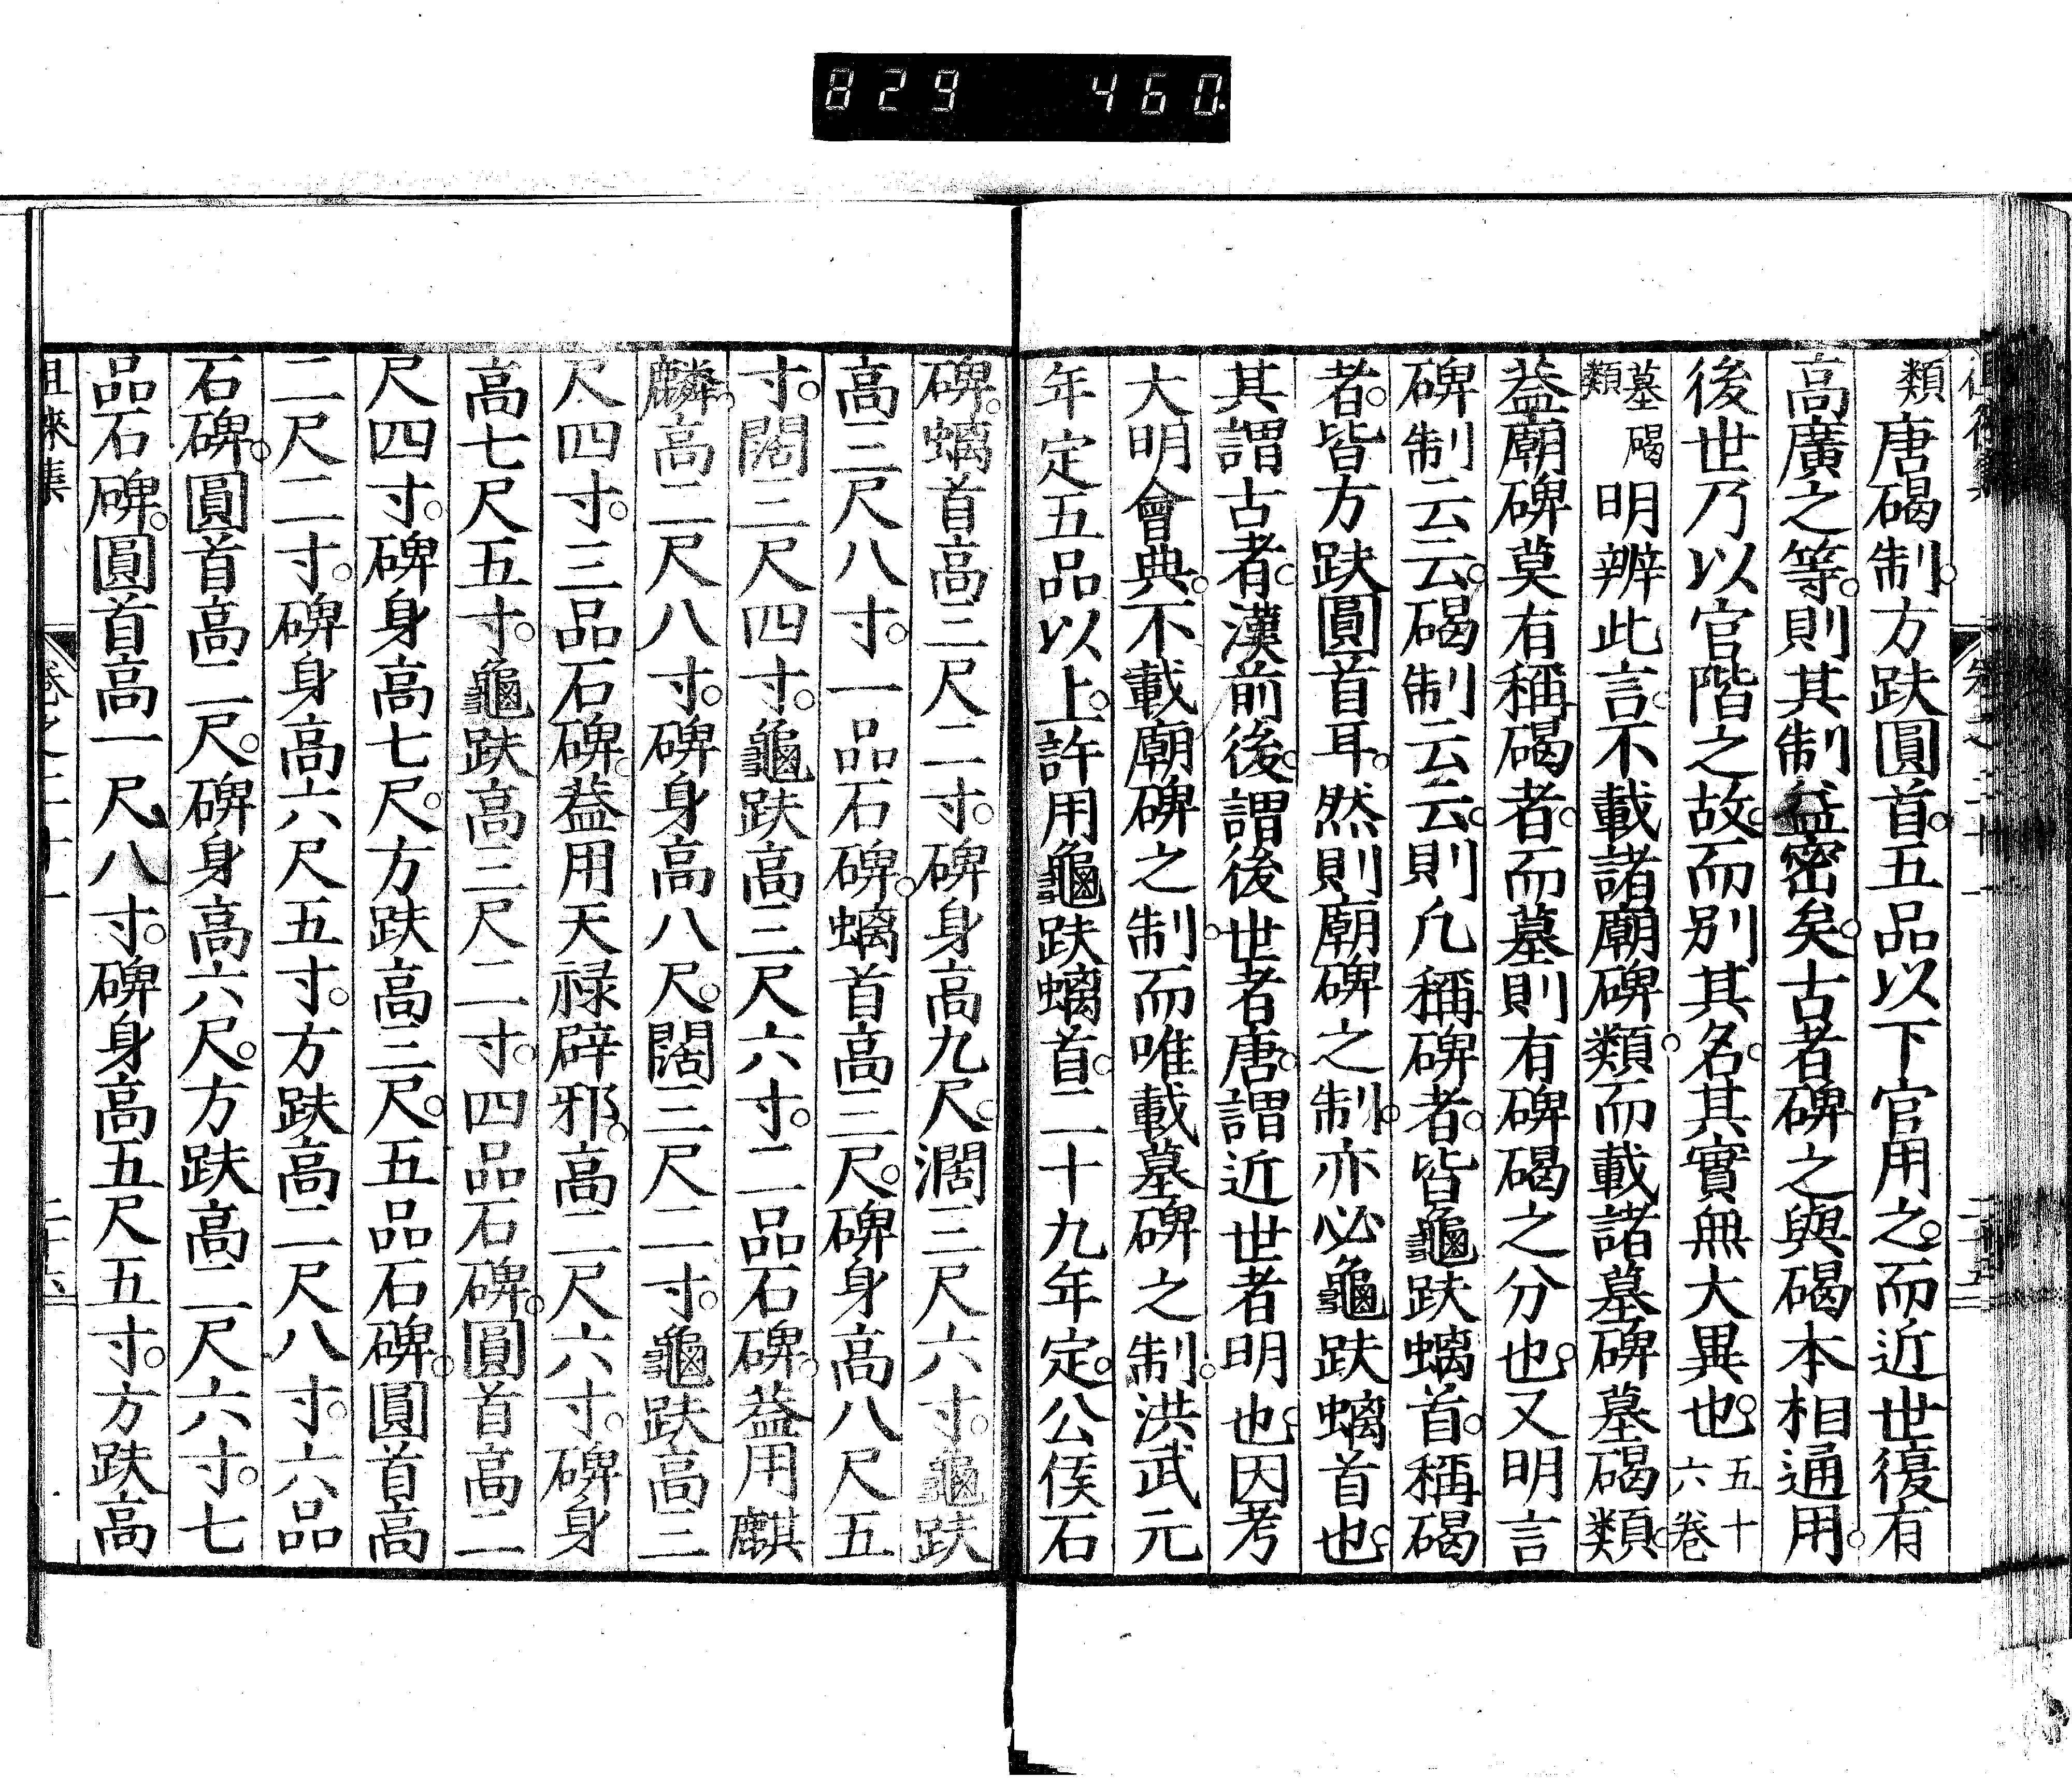 829 460.
類唐碣制。方趺圓首。五品以下官用之。而近世復有
高廣之等。則其制益密矣。古者碑之與碣本相通用。
後世乃以官階之故。而別其名。其實無大異也。五十六卷
墓碣類明辨此言。不載諸廟碑類。而載諸墓碑墓碣類。
葢廟碑莫有稱碣者。而墓則有碑碣之分也。又明言
碑制云云。碣制云云。則凢稱碑者。皆龜趺螭首。稱碣
者。皆方趺圓首耳。然則廟碑之制。亦必龜趺螭首也。
其謂古者。漢前後。謂後世者唐。謂近世者明也。因考
大明會典。不載廟碑之制。而唯載墓碑之制。洪武元
年定五品以上。許用龜趺螭首。二十九年定。公侯石
碑。螭首高三尺二寸。碑身高九尺。濶三尺六寸。龜趺
高三尺八寸。一品石碑。螭首高三尺。碑身高八尺五
寸。闊三尺四寸。龜趺高三尺六寸。二品石碑。葢用麒
麟。高二尺八寸。碑身高八尺。闊三尺二寸。龜趺高三
尺四寸。三品石碑。葢用天禄辟邪。高二尺六寸。碑身
高七尺五寸。龜趺高三尺二寸。四品石碑。圓首高二
尺四寸。碑身高七尺。方趺高三尺。五品石碑。圓首高
二尺二寸。碑身高六尺五寸。方趺高二尺八寸。六品
石碑。圓首高二尺。碑身高六尺。方趺高二尺六寸。七
品石碑。圓首高一尺八寸。碑身高五尺五寸。方趺高